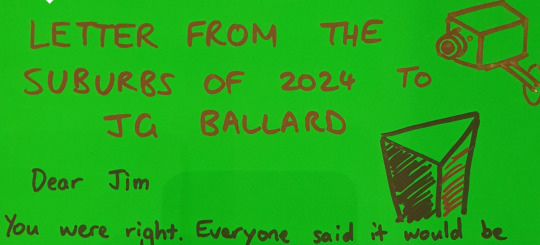 LETTER FROM THE
SUBURBS OF 2024 TO
JG BALLARD
Dear Jim
You were right. Everyone said it would be